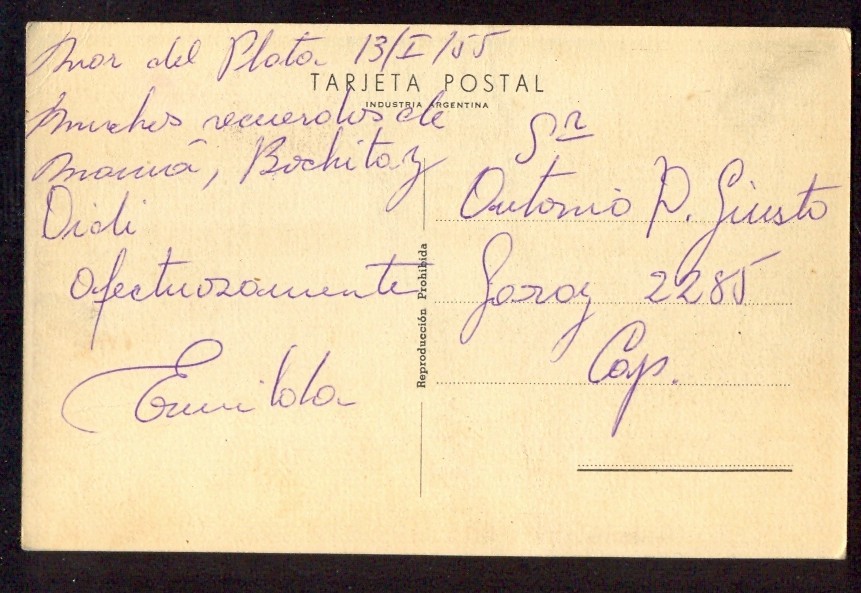 Mar del Plata 13/I/55
TARJETA POSTAL
INDUSTRIA ARGENTINA
Muchos recuerdos de
mamá, Bochita y
Didi
afectuosamente
Emilda
Sr
Antonio P. Giusto
Garay 2285
Cap.
Reproducción Prohibida